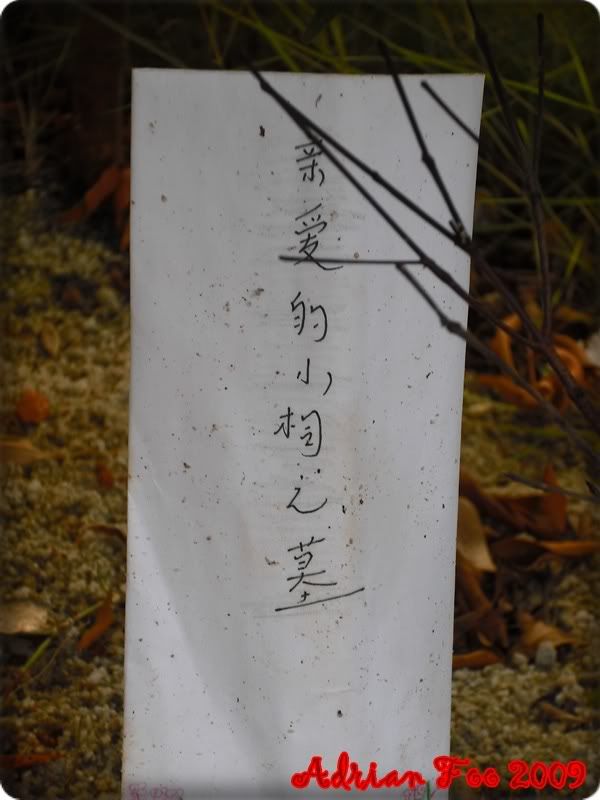 亲爱的小相之墓
Adrian Foo 2009